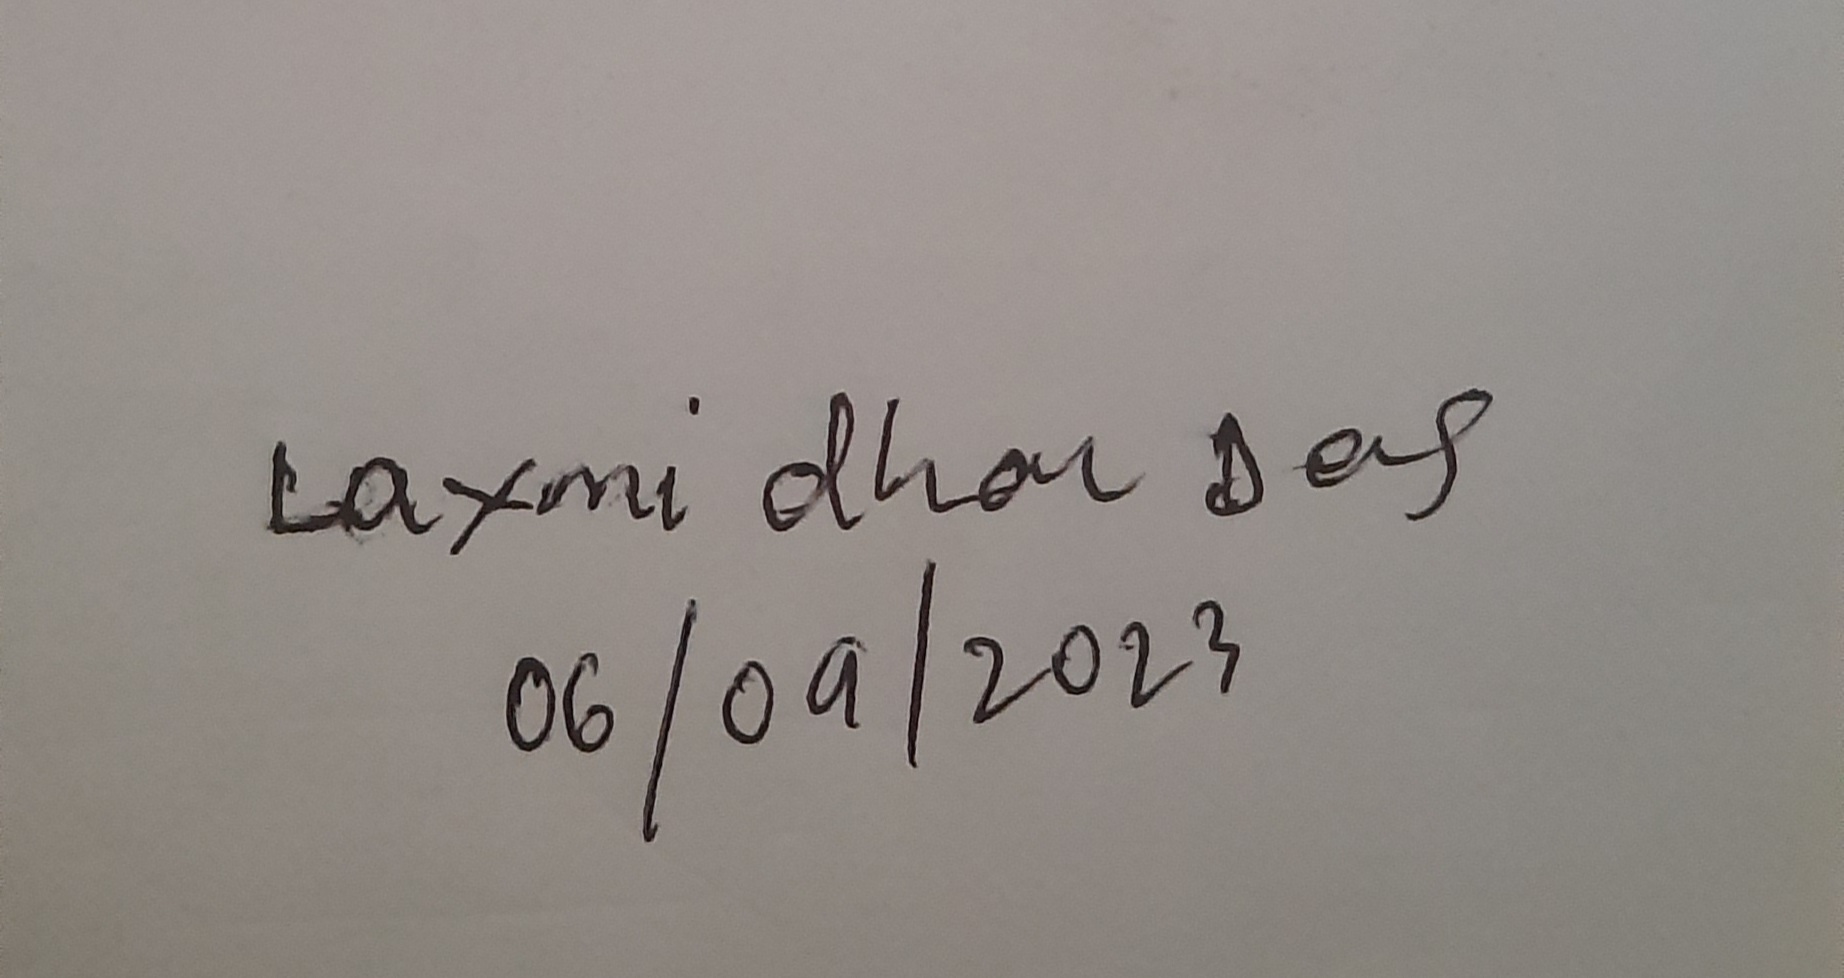 Laxmi dhar Das
06/09/2023